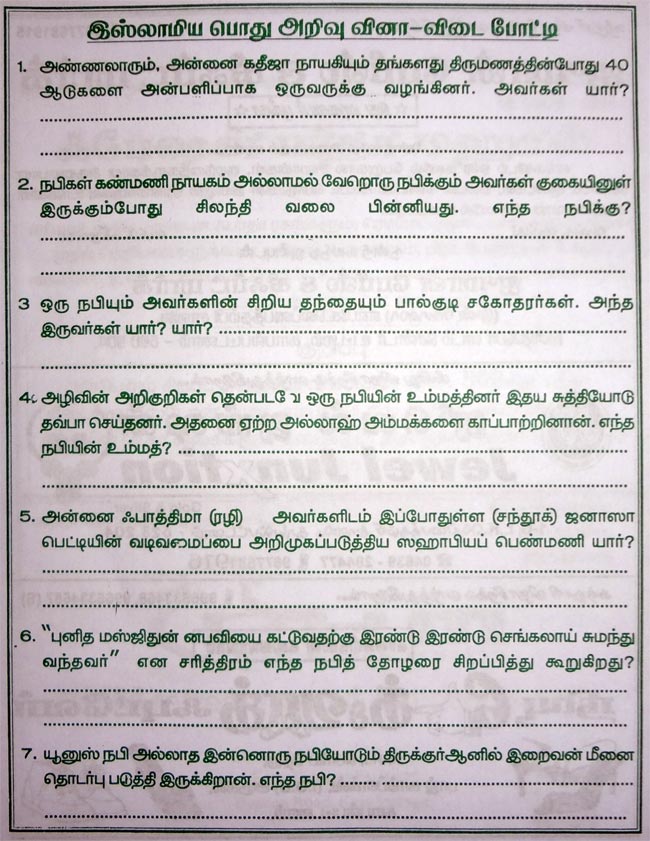 இஸ்லாமிய பொது அறிவு வினா-விடை போட்டி
1. அண்ணலாரும், அன்னை கதீஜா நாயகியும் தங்களது திருமணத்தின்போது 40
ஆடுகளை அன்பளிப்பாக ஒருவருக்கு வழங்கினர். அவர்கள் யார்?
2. நபிகள் கண்மணி நாயகம் அல்லாமல் வேறொரு நபிக்கும் அவர்கள் குகையினுள்
இருக்கும்போது சிலந்தி வலை பின்னியது. எந்த நபிக்கு?
3 ஒரு நபியும் அவர்களின் சிறிய தந்தையும் பால்குடி சகோதரர்கள். அந்த
இருவர்கள் யார்? யார்?
4. அழிவின் அறிகுறிகள் தென்படவே ஒரு நபியின் உம்மத்தினர் இதய சுத்தியோடு
தவ்பா செய்தனர். அதனை ஏற்ற அல்லாஹ் அம்மக்களை காப்பாற்றினான். எந்த
நபியின் உம்மத்?
5. அன்னை ஃபாத்திமா (ரழி) அவர்களிடம் இப்போதுள்ள (சந்தூக்) ஜனாஸா
பெட்டியின் வடிவமைப்பை அறிமுகப்படுத்திய ஸஹாபியப் பெண்மணி யார்?
6. "புனித மஸ்ஜிதுன் னபவியை கட்டுவதற்கு இரண்டு இரண்டு செங்கலாய் சுமந்து
வந்தவர்" என சரித்திரம் எந்த நபித் தோழரை சிறப்பித்து கூறுகிறது?
7. யூனுஸ் நபி அல்லாத இன்னொரு நபியோடும் திருக்குர்ஆனில் இறைவன் மீனை
தொடர்பு படுத்தி இருக்கிறான். எந்த நபி?